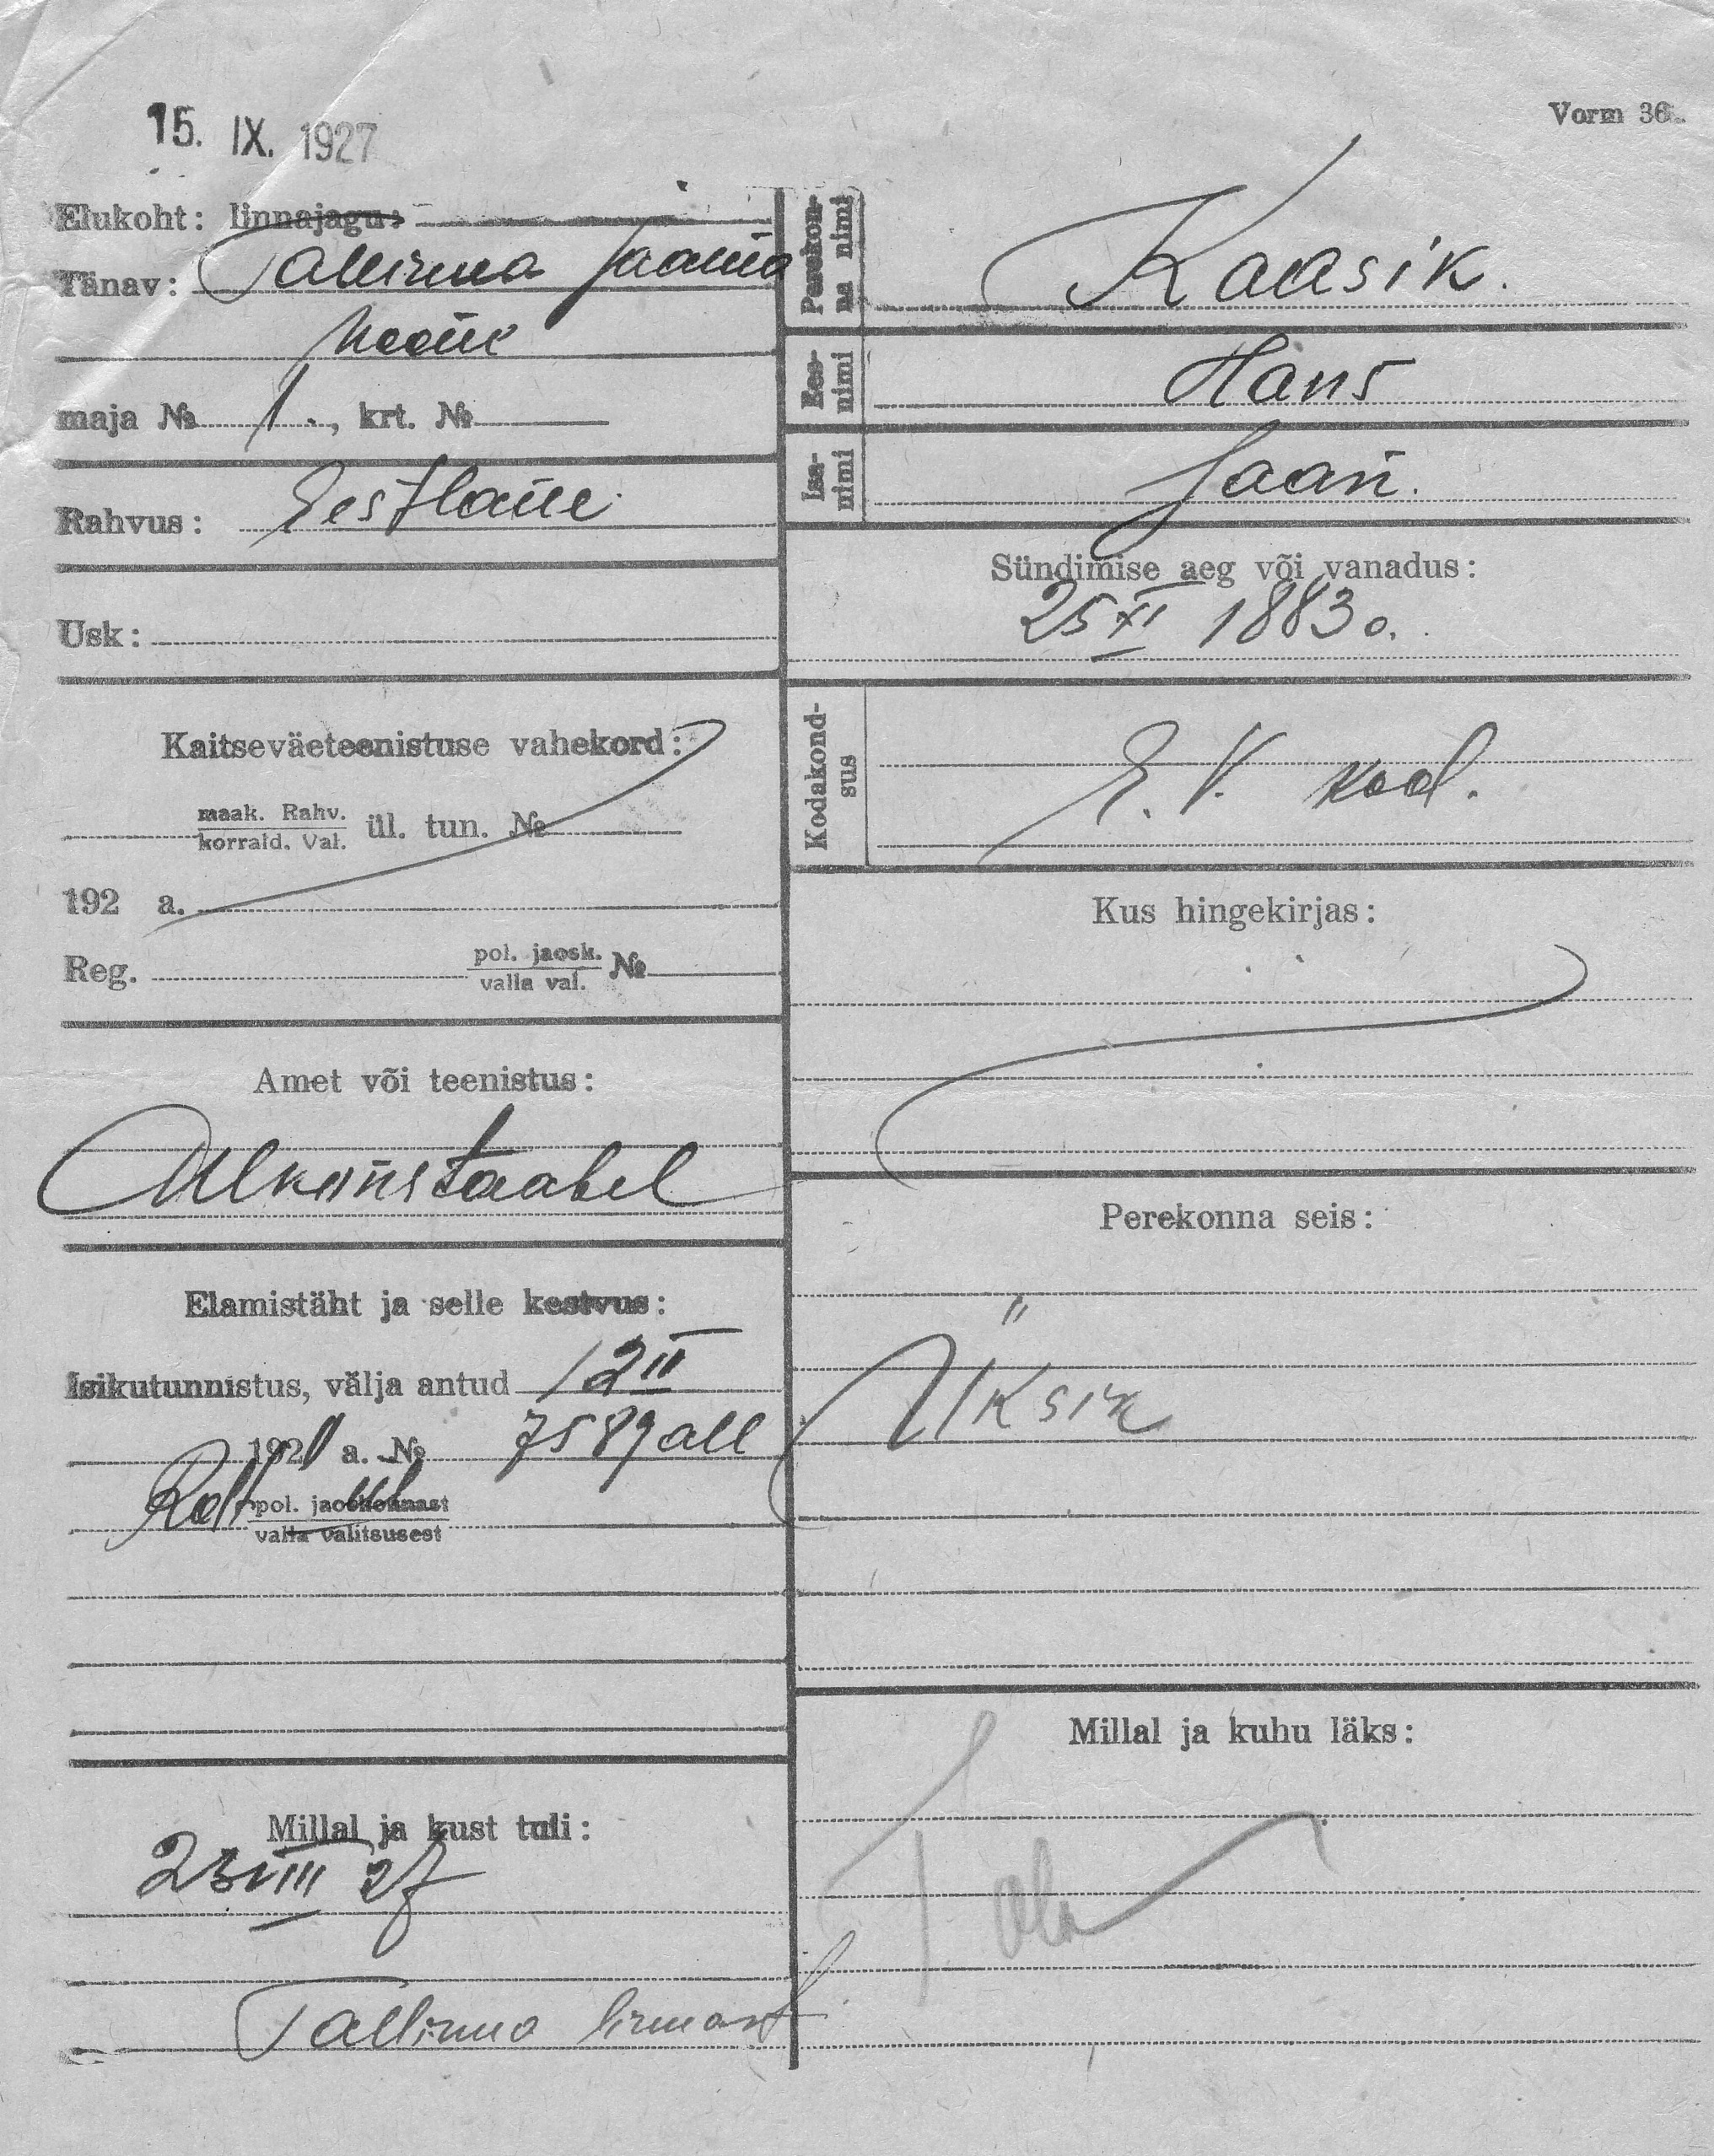 15. IX. 1927
Vorm 36.
Elukoht: linnajagu:
Tänav: Tallinna Jaama
hoone
maja № 1., krt. №
Rahvus: Eestlane
Usk:
Kaitseväeteenistuse vahekord:
maak. Rahv.
korrald. Val. ül. tun. №
192 a.
Reg. pol. jaosk. №
valla val.
Amet või teenistus:
Elamistäht ja selle kestvus:
Isikutunnistus, välja antud 12 II
192 a. № 7589 all
pol. jaoskonnast
valla valitsusest
Millal ja kust tuli:
23 VIII 27
Tallinna linnast
Perekonna nimi
Kaasik.
Eesnimi
Hans
Isanimi
Jaan.
Sündimise aeg või vanadus:
25 XI 1883 a.
Kodakondsus
E. V. kod.
Kus hingekirjas:
Perekonna seis:
Üksik
Millal ja kuhu läks: